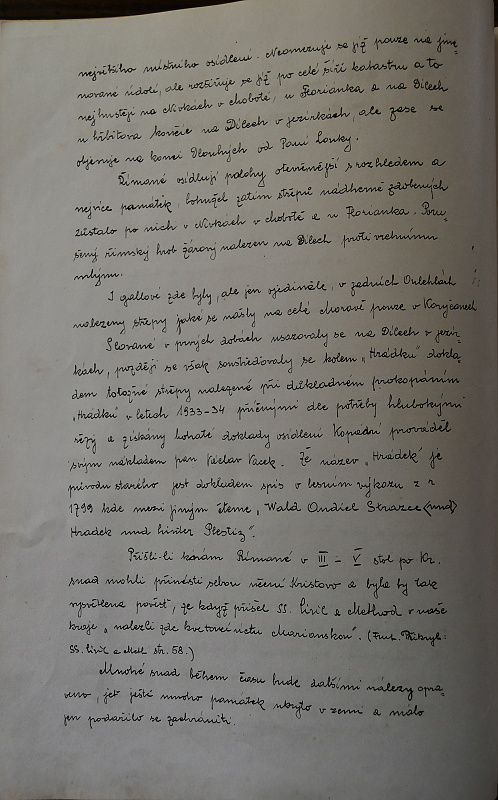 největšího místního osídlení. Neomezuje se již pouze na jme=
nované údolí, ale rozšiřuje se již po celé šíři katastru a to
nejhustěji na Nivkách v chobotě, u Floriánka a na Dílech
u hřbitova končíc na Dílech v jezírkách, ale zase se
objevuje na konci Dlouhých od Paní Louky.
Římané osídlují polohy otevřenější s rozhledem a
nejvíce památek, bohužel zatím střepů nádherně zdobených
zůstalo po nich v Nivkách v chobotě a u Florianka. Poru=
šený římský hrob žárový nalezen na Dílech proti vrchnímu
mlýnu.
I gallové zde byly, ale jen ojediněle, v zadních Outehlách
nalezeny střepy jaké se našly na celé Moravě pouze v Koryčanech
Slované v prvých dobách usazovaly se na Dílech v jezír=
kách, později se však soustřeďovaly se kolem „Hrádku" dokla=
dem totožné střepy nalezené při důkladném prokopáním
„Hrádku" v letech 1933-34 příčnými dle potřeby hlubokými
rýhy a získány bohaté doklady osídlení Kopání prováděl
svým nákladem pan Václav Vacek. Že název „Hrádek" je
původu starého jest dokladem spis v lesním výkazu z r
1799 kde mezi jiným čteme „Wald Ondiel Strazce (und)
Hradek und hinter Plestiz".
Přišli-li k nám Římané v III – V stol po Kr.
snad mohli přinésti sebou učení Kristovo a byla by tak
vysvětlena pověst, že když přišel SS. Ciril a Method v naše
kraje „nalezli zde kvetoucí úctu Marianskou". (Frant. Přikryl:
SS. Ciril a Meth. str. 58.)
Mnohé snad během času bude dalšími nálezy opra=
veno, jet ještě mnoho památek ukryto v zemi a málo
jen podařilo se zachrániti.